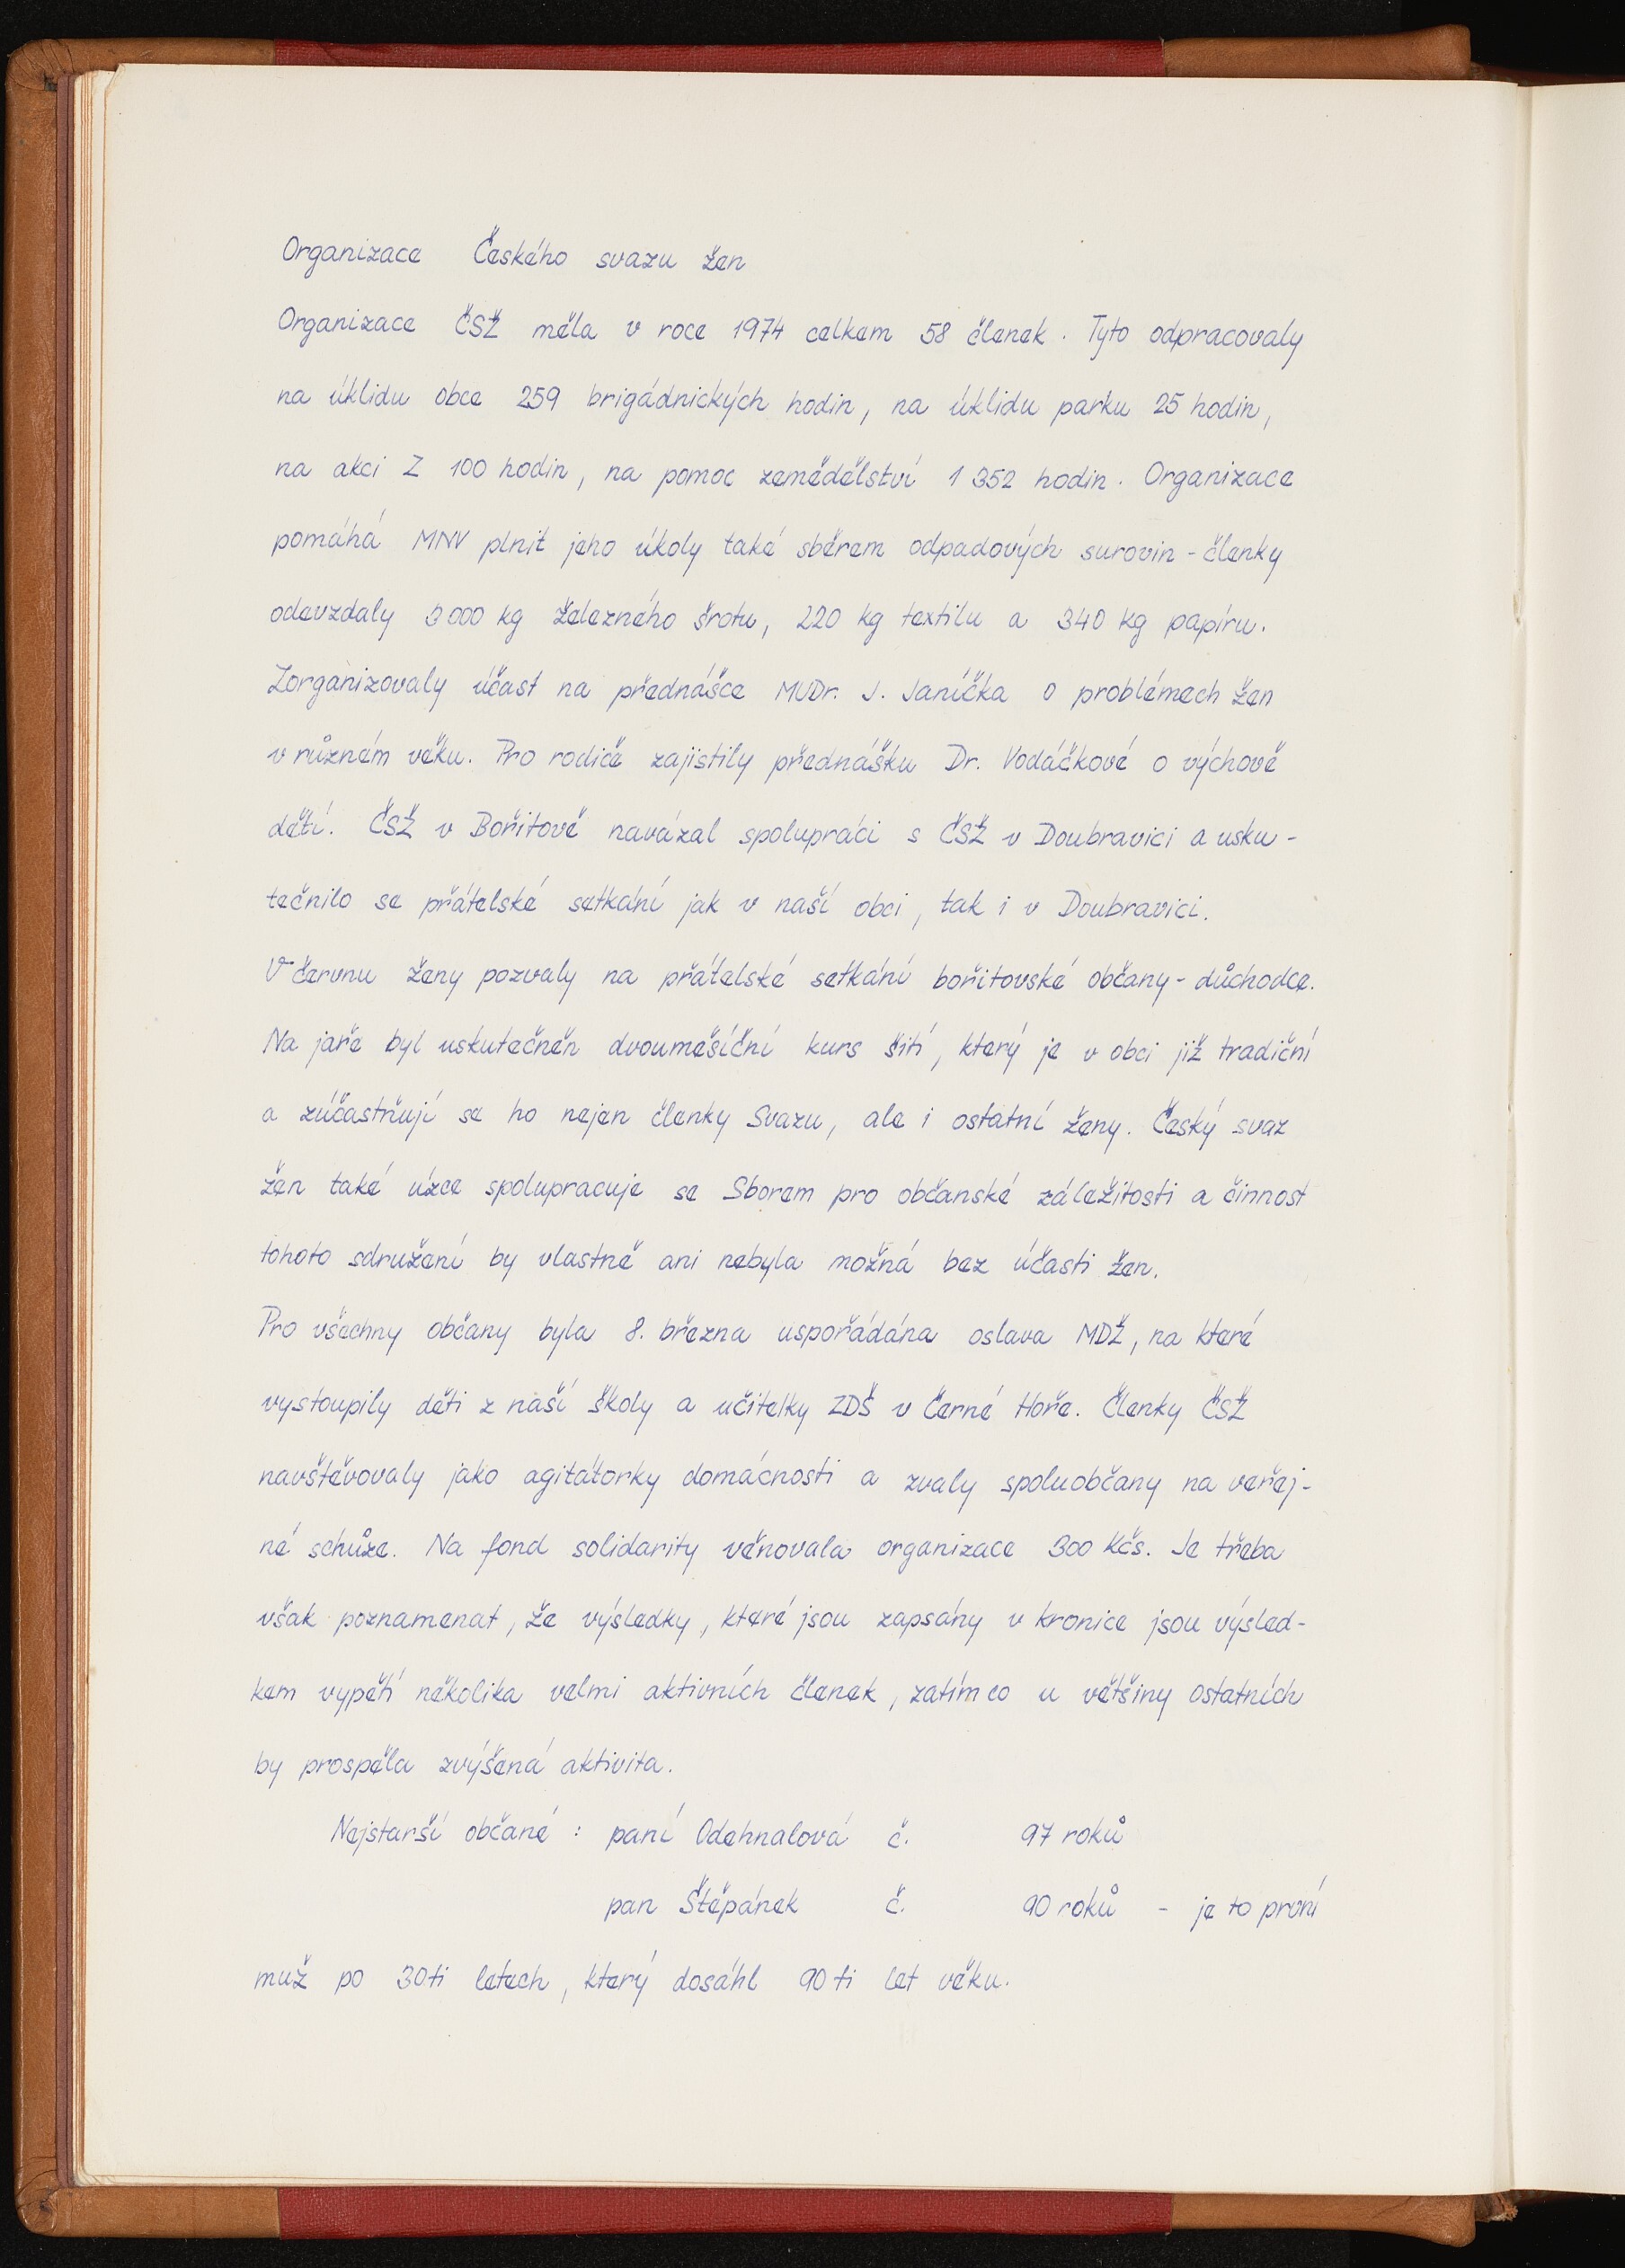 Organizace Českého svazu žen
Organizace ČSŽ měla v roce 1974 celkem 58 členek. Tyto odpracovaly
na úklidu obce 259 brigádnických hodin, na úklidu parku 25 hodin,
na akci Z 100 hodin, na pomoc zemědělství 1 352 hodin. Organizace
pomáhá MNV plnit jeho úkoly také sběrem odpadových surovin - členky
odevzdaly 3 000 kg železného šrotu, 220 kg textilu a 340 kg papíru.
Zorganizovaly účast na přednášce MUDr. J. Janíčka o problémech žen
v různém věku. Pro rodiče zajistily přednášku Dr. Vodáčkové o výchově
dětí. ČSŽ v Bořitově navázal spolupráci s ČSŽ v Doubravici a usku-
tečnilo se přátelské setkání jak v naší obci, tak i v Doubravici.
V červnu ženy pozvaly na přátelské setkání bořitovské občany - důchodce.
Na jaře byl uskutečněn dvouměsíční kurs šití, který je v obci již tradiční
a zúčastňují se ho nejen členky Svazu, ale i ostatní ženy. Český svaz
žen také úzce spolupracuje se Sborem pro občanské záležitosti a činnost
tohoto sdružení by vlastně ani nebyla možná bez účasti žen.
Pro všechny občany byla 8. března uspořádána oslava MDŽ, na které
vystoupily děti z naší školy a učitelky ZDŠ v Černé Hoře. Členky ČSŽ
navštěvovaly jako agitátorky domácnosti a zvaly spoluobčany na veřej-
né schůze. Na fond solidarity věnovala organizace 300 Kčs. Je třeba
však poznamenat, že výsledky, které jsou zapsány v kronice jsou výsled-
kem vypětí několika velmi aktivních členek, zatím co u většiny ostatních
by prospěla zvýšená aktivita.
Nejstarší občané : paní Odehnalová č. 97 roků
pan Štěpánek č. 90 roků - je to první
muž po 30ti letech, který dosáhl 90ti let věku.